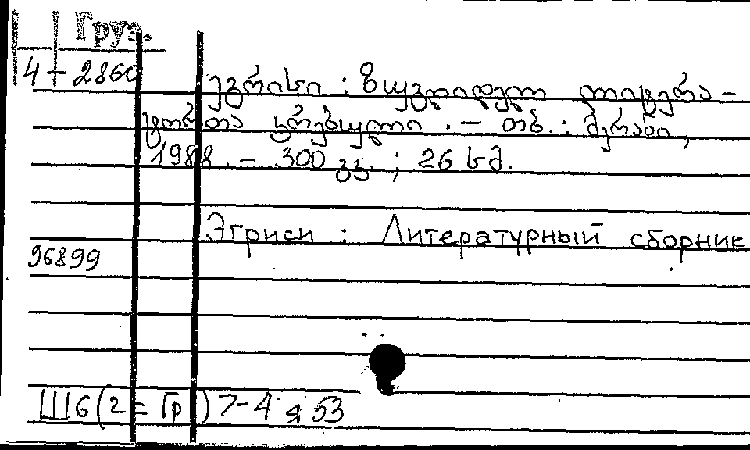 Груз.
4-2860
ეგრისი : ზუგდიდელ ლიტერა-
ტორთა კრებული . – თბ. : მერანი,
1988 . – 300 გვ. ; 26 სმ.
Эгриси : Литературный сборник
96899
Ш6(2=Гр)7-4 я53